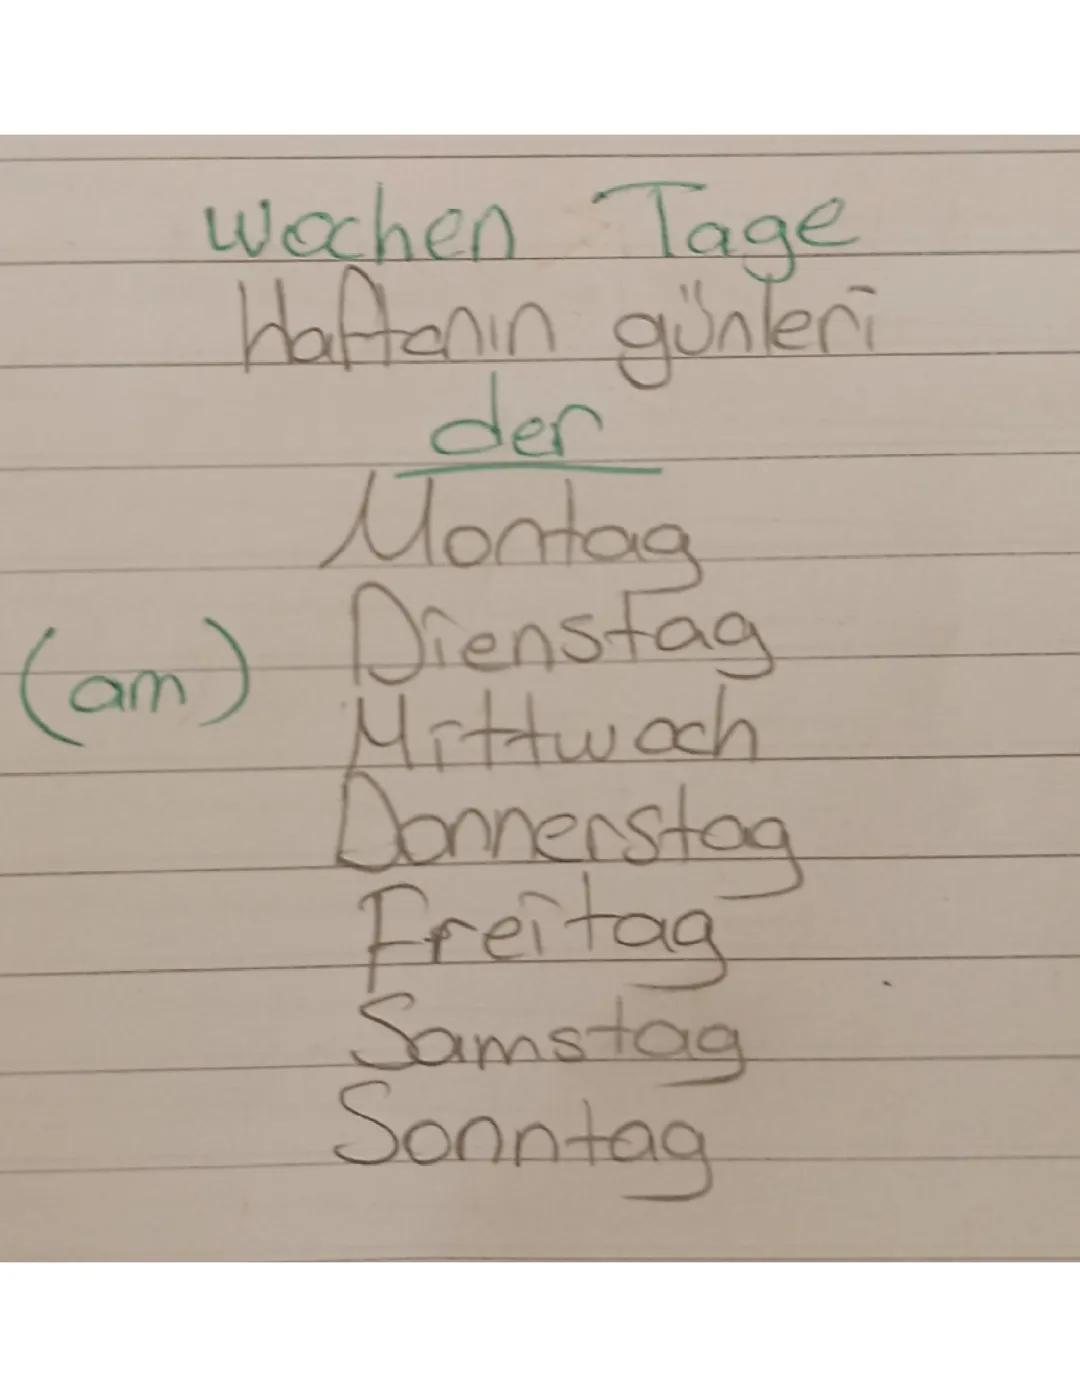 wochen Tage
Haftanın günleri
der
Montag
Dienstag
(am)
Mittwoch
Donnerstag
Freitag
Samstag
Sonntag